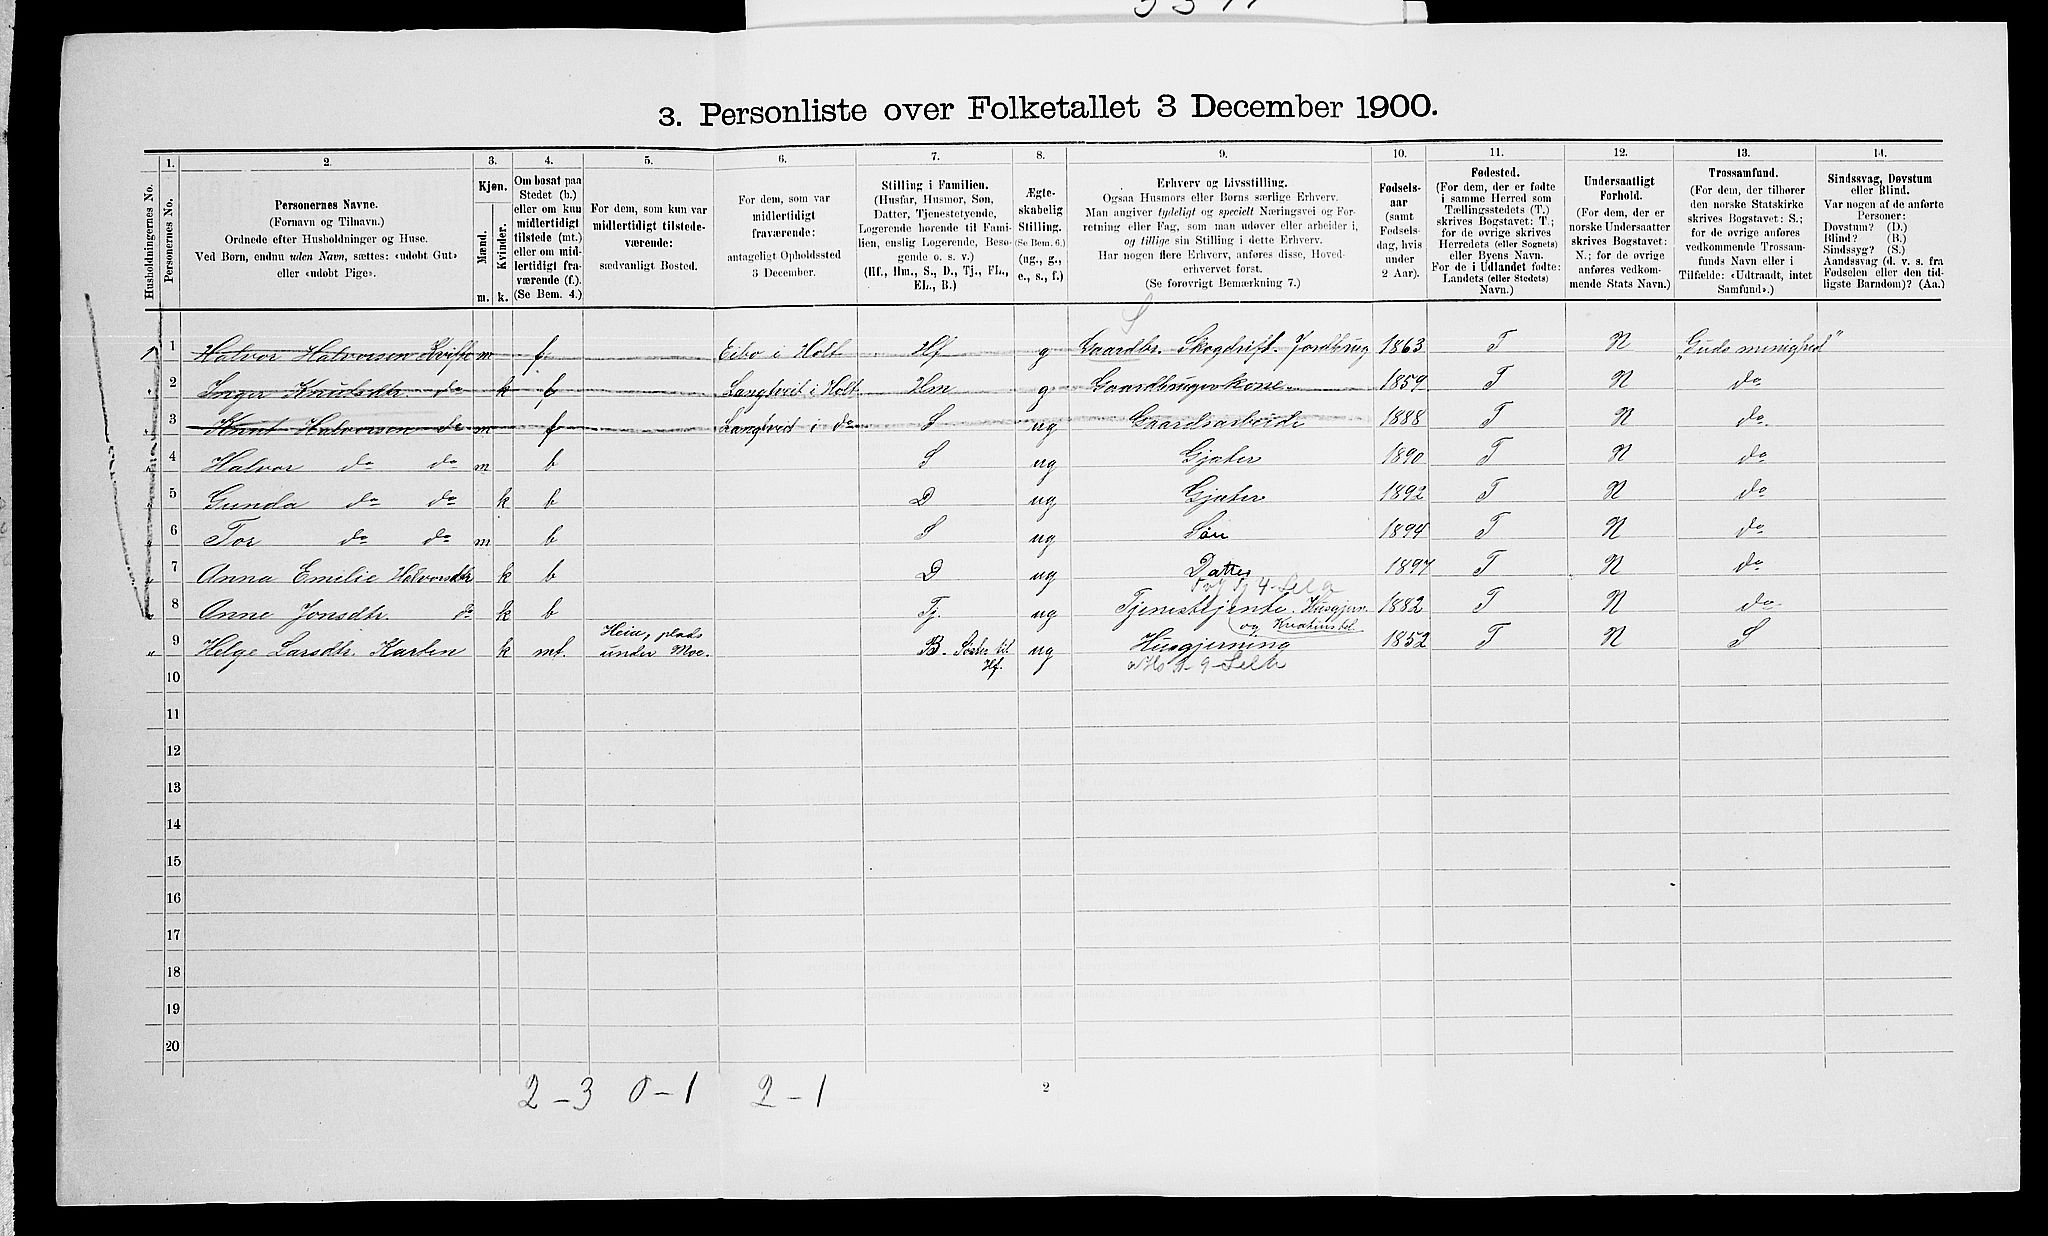 3. Personliste over Folketallet 3 December 1900.
1. 2. 3. 4. 5. 6. 7. 8. 9. 10. 11. 12. 13. 14.
Husholdningernes No.
Personernes No.
Personernes Navne.
(Fornavn og Tilnavn.)
Ordnede efter Husholdninger og Huse.
Ved Børn, endnu uden Navn, sættes: «udobt Gut»
eller «udobt Pige».
Kjøn.
Mænd.
Kvinder.
m. k.
Om bosat paa
Stedet (b.)
eller om kun
midlertidigt
tilstede (mt.)
eller om mid-
lertidigt fra-
værende (f.).
(Se Bem. 4.)
For dem, som kun var
midlertidigt tilstede-
værende:
sædvanligt Bosted.
For dem, som var
midlertidigt
fraværende:
antageligt Opholdssted
3 December.
Stilling i Familien.
(Husfar, Husmor, Søn,
Datter, Tjenestetyende,
Logerende hørende til Fami-
lien, enslig Logerende, Besø-
gende o. s. v.)
(Hf., Hm., S., D., Tj., FL.,
EL., B.)
Ægte-
skabelig
Stilling.
(Se Bem. 6.)
(ug., g.,
e., s., f.)
Erhverv og Livsstilling.
Ogsaa Husmors eller Børns særlige Erhverv.
Man angiver tydeligt og specielt Næringsvei og For-
retning eller Fag, som man udøver eller arbeider i,
og tillige sin Stilling i dette Erhverv.
Har nogen flere Erhverv, anføres disse, Hoved-
erhvervet først.
(Se forøvrigt Bemærkning 7.)
Fødsels-
aar
(samt
Fødsels-
dag, hvis
under
2 Aar).
Fødested.
(For dem, der er fødte
i samme Herred som
Tællingsstedets (T.)
skrives Bogstavet: T.;
for de øvrige skrives
Herredets (eller Sognets)
eller Byens Navn.
For de i Udlandet fødte:
Landets (eller Stedets)
Navn.)
Undersaatligt
Forhold.
(For dem, der er
norske Undersaatter
skrives Bogstavet:
N.; for de øvrige
anføres vedkom-
mende Stats Navn.)
Trossamfund.
(For dem, der tilhører
den norske Statskirke
skrives Bogstavet: S.;
for de øvrige anføres
vedkommende Trossam-
funds Navn eller i
Tilfælde: «Udtraadt, intet
Samfund».)
Sindssvag, Døvstum
eller Blind.
Var nogen af de anførte
Personer:
Døvstum? (D.)
Blind? (B.)
Sindssyg? (S.)
Aandssvag (d. v. s. fra
Fødselen eller den tid-
ligste Barndom)? (Aa.)
1 Halvor Halvorsen m f Eibo i Holt Hf g Gaardbr. Skogdrift. Jordbrug 1863 T N „Guds menighed"
2 Inger Knudsdtr. do k f Langtveit i Holt Hm g Gaardbrugerkone. 1859 T N do
3 Knut Halvorsen do m f Langtveit i do S ug Gaardsarbeide 1888 T N do.
4 Halvor do do m b S ug Gjæter 1890 T N do
5 Gunda do do k b D ug Gjæter 1892 T N do
6 Tor do do m b S ug Søn 1894 T N do
7 Anna Emilie Halvorsdtr k b D ug Datter 1897 T N do
8 Anne Jonsdtr. do k b Tj. ug Tjenestjente. Husgjern. 1882 T N do
og Kreaturstel
9 Helge Larsdtr. Karten k mt. Heia, plads under Moe. B. Søster til Hf. ug Husgjerning 1852 T N S
10
11
12
13
14
15
16
17
18
19
20
2 – 3 0 – 1 2 – 1
2